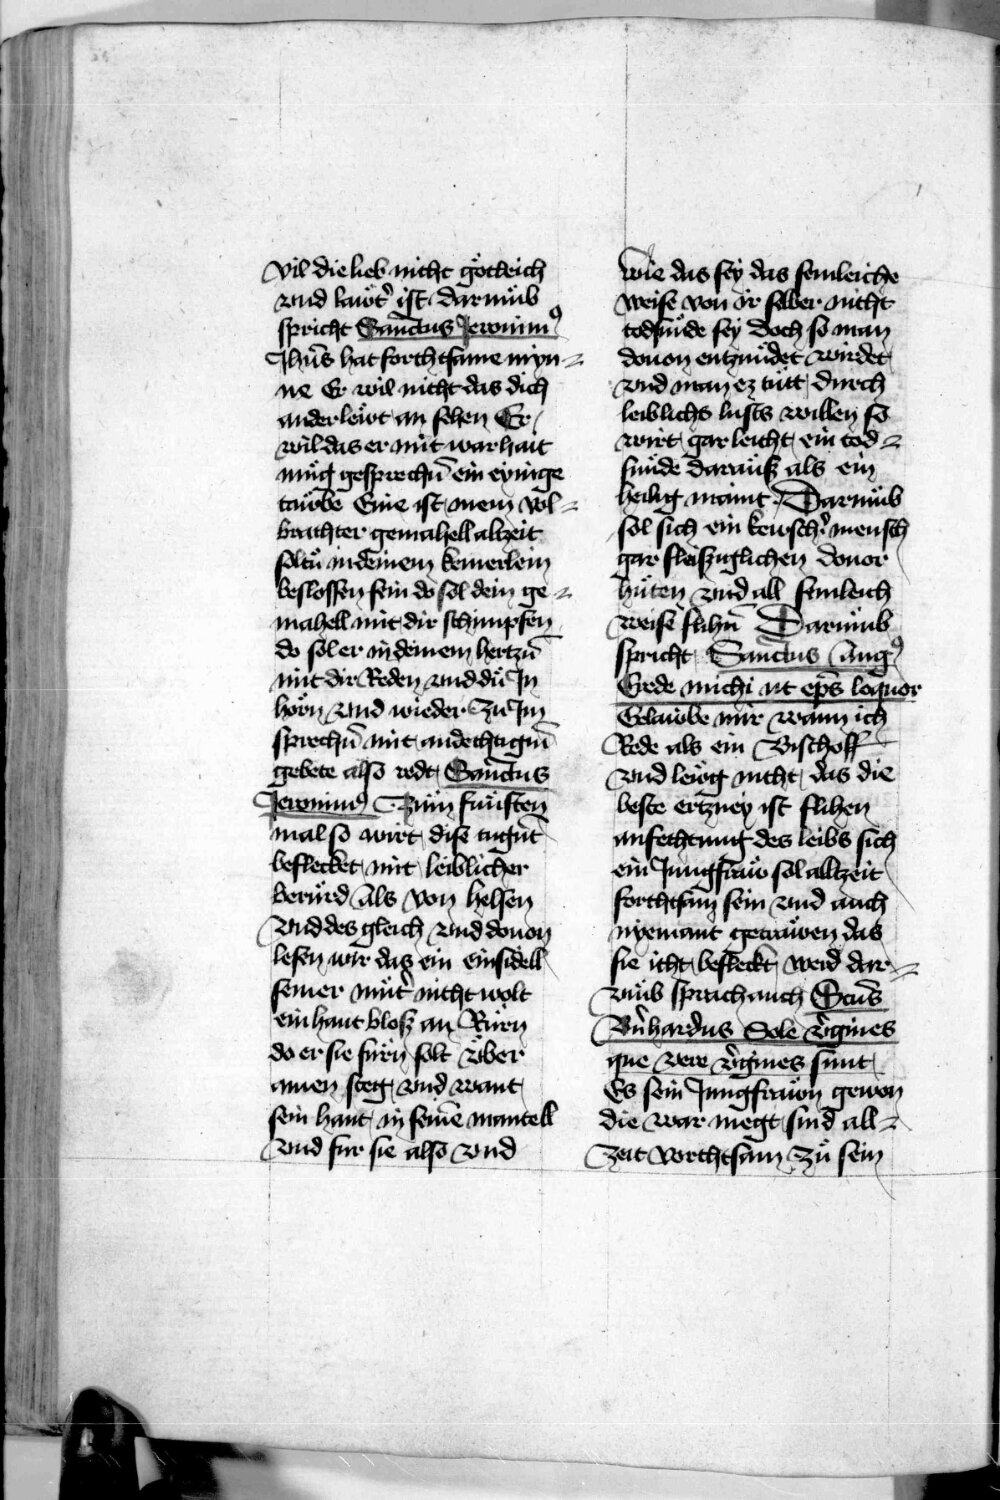 vil die lieb nicht götleich
vnd lawtˀ ist darnüb
spricht Sanctus Jeronimꝰ
Jhūs hat forchtsame myn⸗
ne Er wil nicht das dich
ander lewt an sehen Er
wil das er mit warhait
müg gesprechn̄ ein eynige
tawbe Eine ist mein vol⸗
brachter gemahell altzeit
soltu in deinem kemerlein
beslossen sein do sol dein ge⸗
mahell mit dir schimpfen
do sol er in deinem hertzn̄
mit dir Reden vnd dü In
hörn vnd wieder zu Im
sprechn̄ mit andechtign̄
gebete also redt Sanctus
Jeronimꝰ Zum fünften
mal so wirt dise tugnt
befleckt mit leiblicher
berürd als von helsen
vnd des gleich vnd douon
lesen wir das ein einsidell
seiner mutˀ nicht wolt
ein hant blosz an Rürn
do er sie fürn solt vber
ainen steg vnd want
sein hant in seinē mantell
vnd fur sie also vnd
wie das sey das semleiche
weise von ir selber nicht
todsünde sey doch so man
douon entzündet wirdet
vnd man ez tutt durch
leiblichs lusts willen so
wirt gar leicht ein tod⸗
sünde darausz als ein
heilig maint Darnüb
sol sich ein kewschˀ mensch
gar fleiszziglichen douor
hüten vnd all semleich
weise flihn̄ Darnüb
spricht Sanctus Augꝰ
Crede michi ut ep̄s loquor
Gelawbe mir wann ich
Rede als ein Bischoff
vnd lewg nicht das die
beste ertzney ist flihen
anfechtung des leibs sich
ein Jungfraw sol altzeit
forchtsam sein vnd auch
nyemant getrawen das
sie icht befleckt werd dar⸗
vmb sprach auch Sctūs
Bn̄hardus Sole v̄gines
que vere v̄gines sunt
Es sein Jungfrawn gewon
die war megt sind all⸗
zeit vorchtsam zu sein